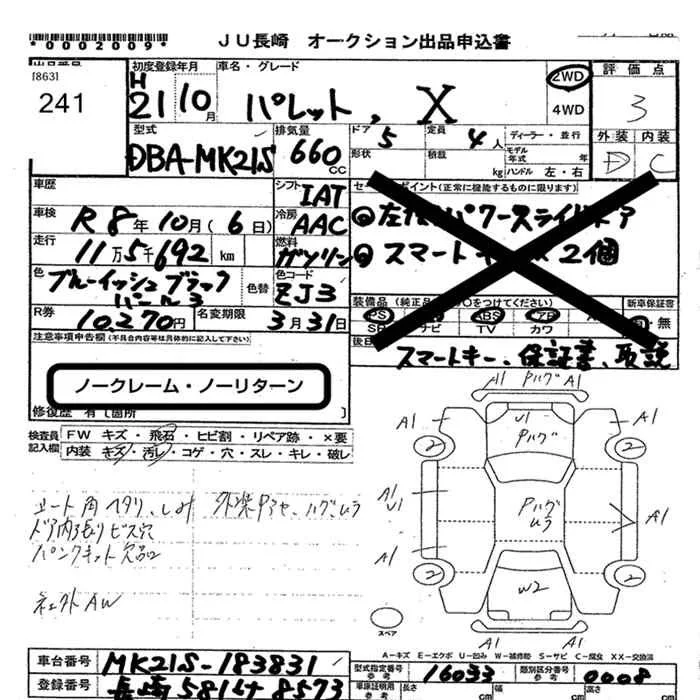 *0002009*
JU長崎 オークション出品申込書
出品番号
[863]
241
初度登録年月
H
21 10月
車名・グレード
パレット, X
2WD
4WD
評価点
3
外装 内装
D C
型式
DBA-MK21S
排気量
660
CC
ドア 5
定員 4人
ディーラー・並行
形状
積載 kg
モデル年式 年
ハンドル 左・右
車歴
シフト IAT
セールスポイント(正常に機能するものに限ります)
車検 R8年10月(6日)
冷房 AAC
走行 11万5千692 km
燃料 ガソリン
スマートキー×2個
色 ブルーイッシュブラックパール3
色替
色コード ZJ3
装備品
新車保証書
有・無
PS ナビ ABS TV カワ
R券 10,270円
名変期限 3月31日
注意事項申告欄(不具合内容等は具体的に記入して下さい)
スマートキー、保証書、取説
ノークレーム・ノーリターン
修復歴 有[箇所 ]
検査員記入欄
FW キズ・飛石・ヒビ割・リペア跡・×要
内装 キズ・汚レ・コゲ・穴・スレ・キレ・破レ
シート角ヘタリ、しみ
ドア内張りビス穴
パンクキット欠品
社外AW
A1 Pハゲ A1
A1 U1 Pハゲ A1
2 2
A1 U1 Pハゲ ムラ A1
A1
2 W2 2
A1 A1
スペア
A-キズ E-エクボ U-凹み W-補修跡 S-サビ C-腐食 XX-交換済
車台番号 MK21S-183831
型式指定番号 参考 16033
類別区分番号 参考 0008
登録番号 長崎581ム8573
車検証明用 参考
長さ cm
幅 cm
高さ cm